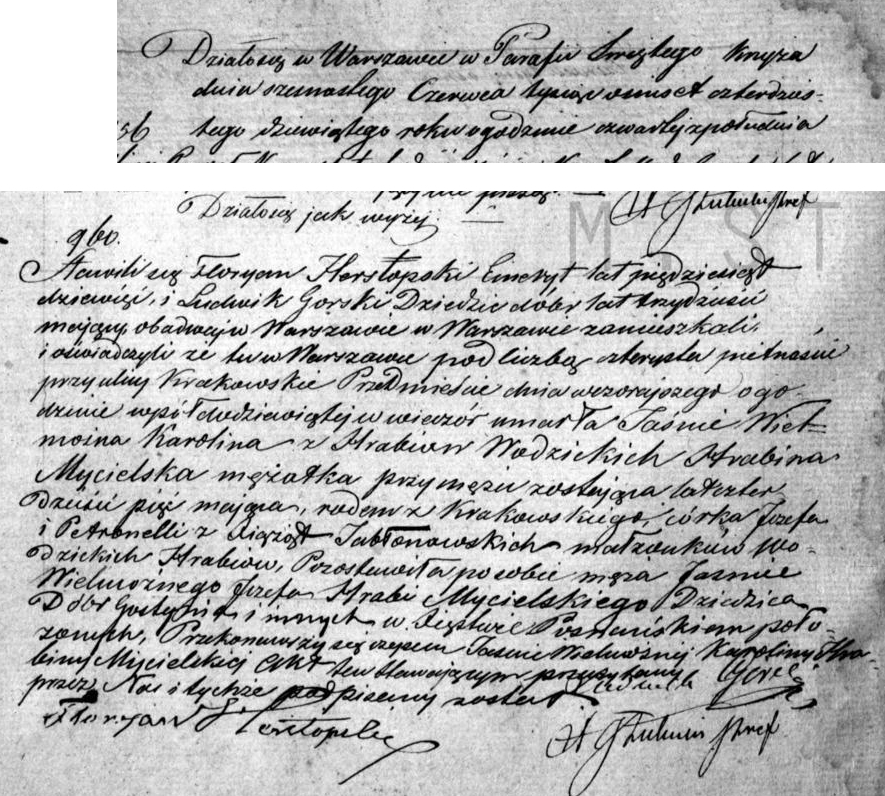 Działo się w Warszawie w Parafii Świętego Krzyża
dnia szesnastego Czerwca tysiąc osmset czterdzies-
56 tego dziewiątego roku o godzinie czwartej z południa
Działo się jak wyżej
960.
Stawili się Floryan Emeryt lat pięćdziesiąt
dziewięć, i Ludwik Gorski Dziedzic dóbr lat trzydzieści
mający, obadwaj w Warszawie w Warszawie zamieszkali,
i oświadczyli że tu w Warszawie pod liczbą czterysta pietnaście
przy ulicy Krakowskie Przedmieście dnia wczorajszego o go-
dzinie wpół do dziewiątej w wieczór umarła Jaśnie Wiel-
można Karolina z Hrabiow Wodzickich Hrabina
Mycielska mężatka przy mężu zostająca lat czter-
dzieści pięć mająca, rodem z Krakowskiego, córka Jozefa
i Petronelli z Xiążąt Jabłonowskich małżonków Wo-
dzickich Hrabiow, Pozostawiła po sobie męża Jaśnie
Wielmożnego Jozefa Hrabi Mycielskiego Dziedzica
Dóbr Gostynia i innych w Xięstwie Poznańskiem poło-
żonych, Przekonawszy się o zejściu Jaśnie Wielmożnej Karoliny Hra-
biny Mycielskiej Akt ten stawającym przeczytany
przez Nas i tychże podpisany został Ludwik Gorski
Floryan
M ST